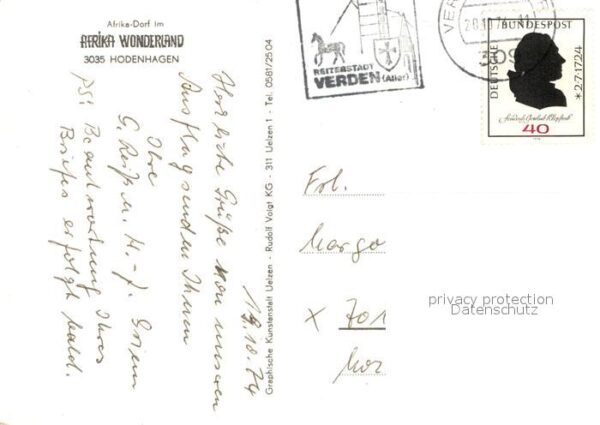 Afrika-Dorf Im
AFRIKA WONDERLAND
3035 HODENHAGEN
19.10.74
Herrliche Grüße von unserem
Ausflug senden Ihnen
Ihre
G. Reiß u. H.-J.
PS: Beantwortung Ihres
Briefes erfolgt bald.
Graphische Kunstanstalt Uelzen - Rudolf Voigt KG - 311 Uelzen 1 - Tel. 0581/2504
REITERSTADT
VERDEN (Aller)
VER
DEUTSCHE BUNDESPOST
*2·7·1724
Friedrich Gottlieb Klopstock
40
Frl.
Marga
x 701
Mor
privacy protection
Datenschutz